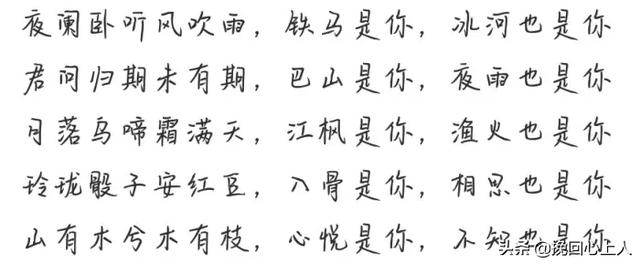 夜阑卧听风吹雨，铁马是你，冰河也是你
君问归期未有期，巴山是你，夜雨也是你
月落乌啼霜满天，江枫是你，渔火也是你
玲珑骰子安红豆，入骨是你，相思也是你
山有木兮木有枝，心悦是你，不知也是你
头条 @挽回心上人